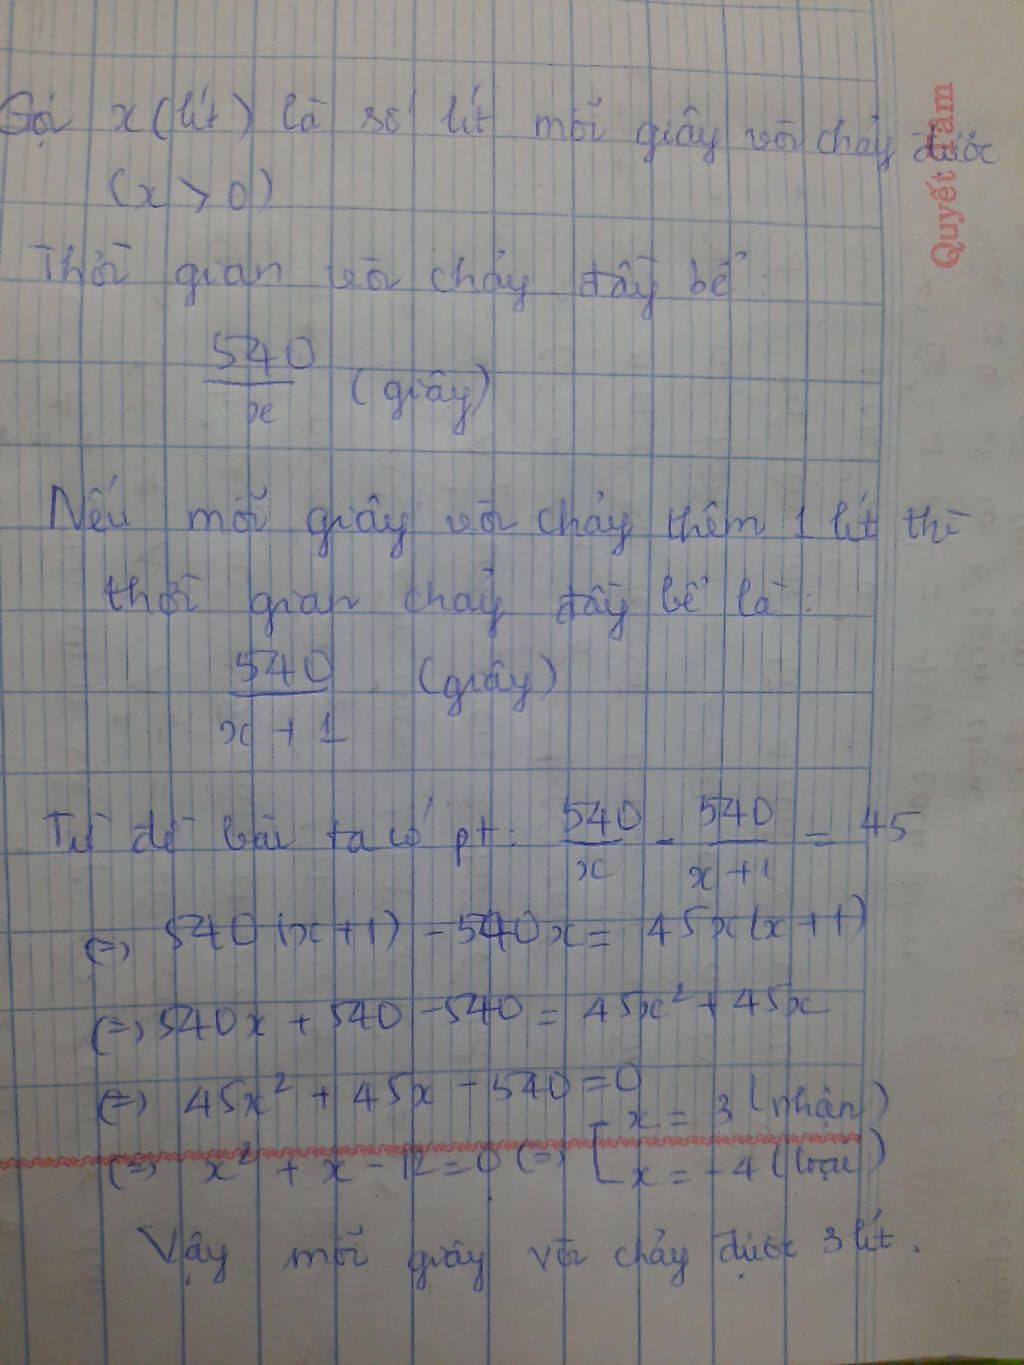 Gọi x (lít) là số lít mỗi giây vòi chảy được
(x > 0)
Thời gian vòi chảy đầy bể :
540/x (giây)
Nếu mỗi giây vòi chảy thêm 1 lít thì
thời gian chảy đầy bể là :
540/(x + 1) (giây)
Từ đề bài ta có pt: 540/x - 540/(x + 1) = 45
(=) 540 (x + 1) - 540x = 45x(x + 1)
(=) 540x + 540 - 540 = 45x² + 45x
(=) 45x² + 45x - 540 = 0
(=) x² + x - 12 = 0 (=) [ x = 3 (nhận)
x = -4 (loại)
Vậy mỗi giây vòi chảy được 3 lít.
Quyết Tâm